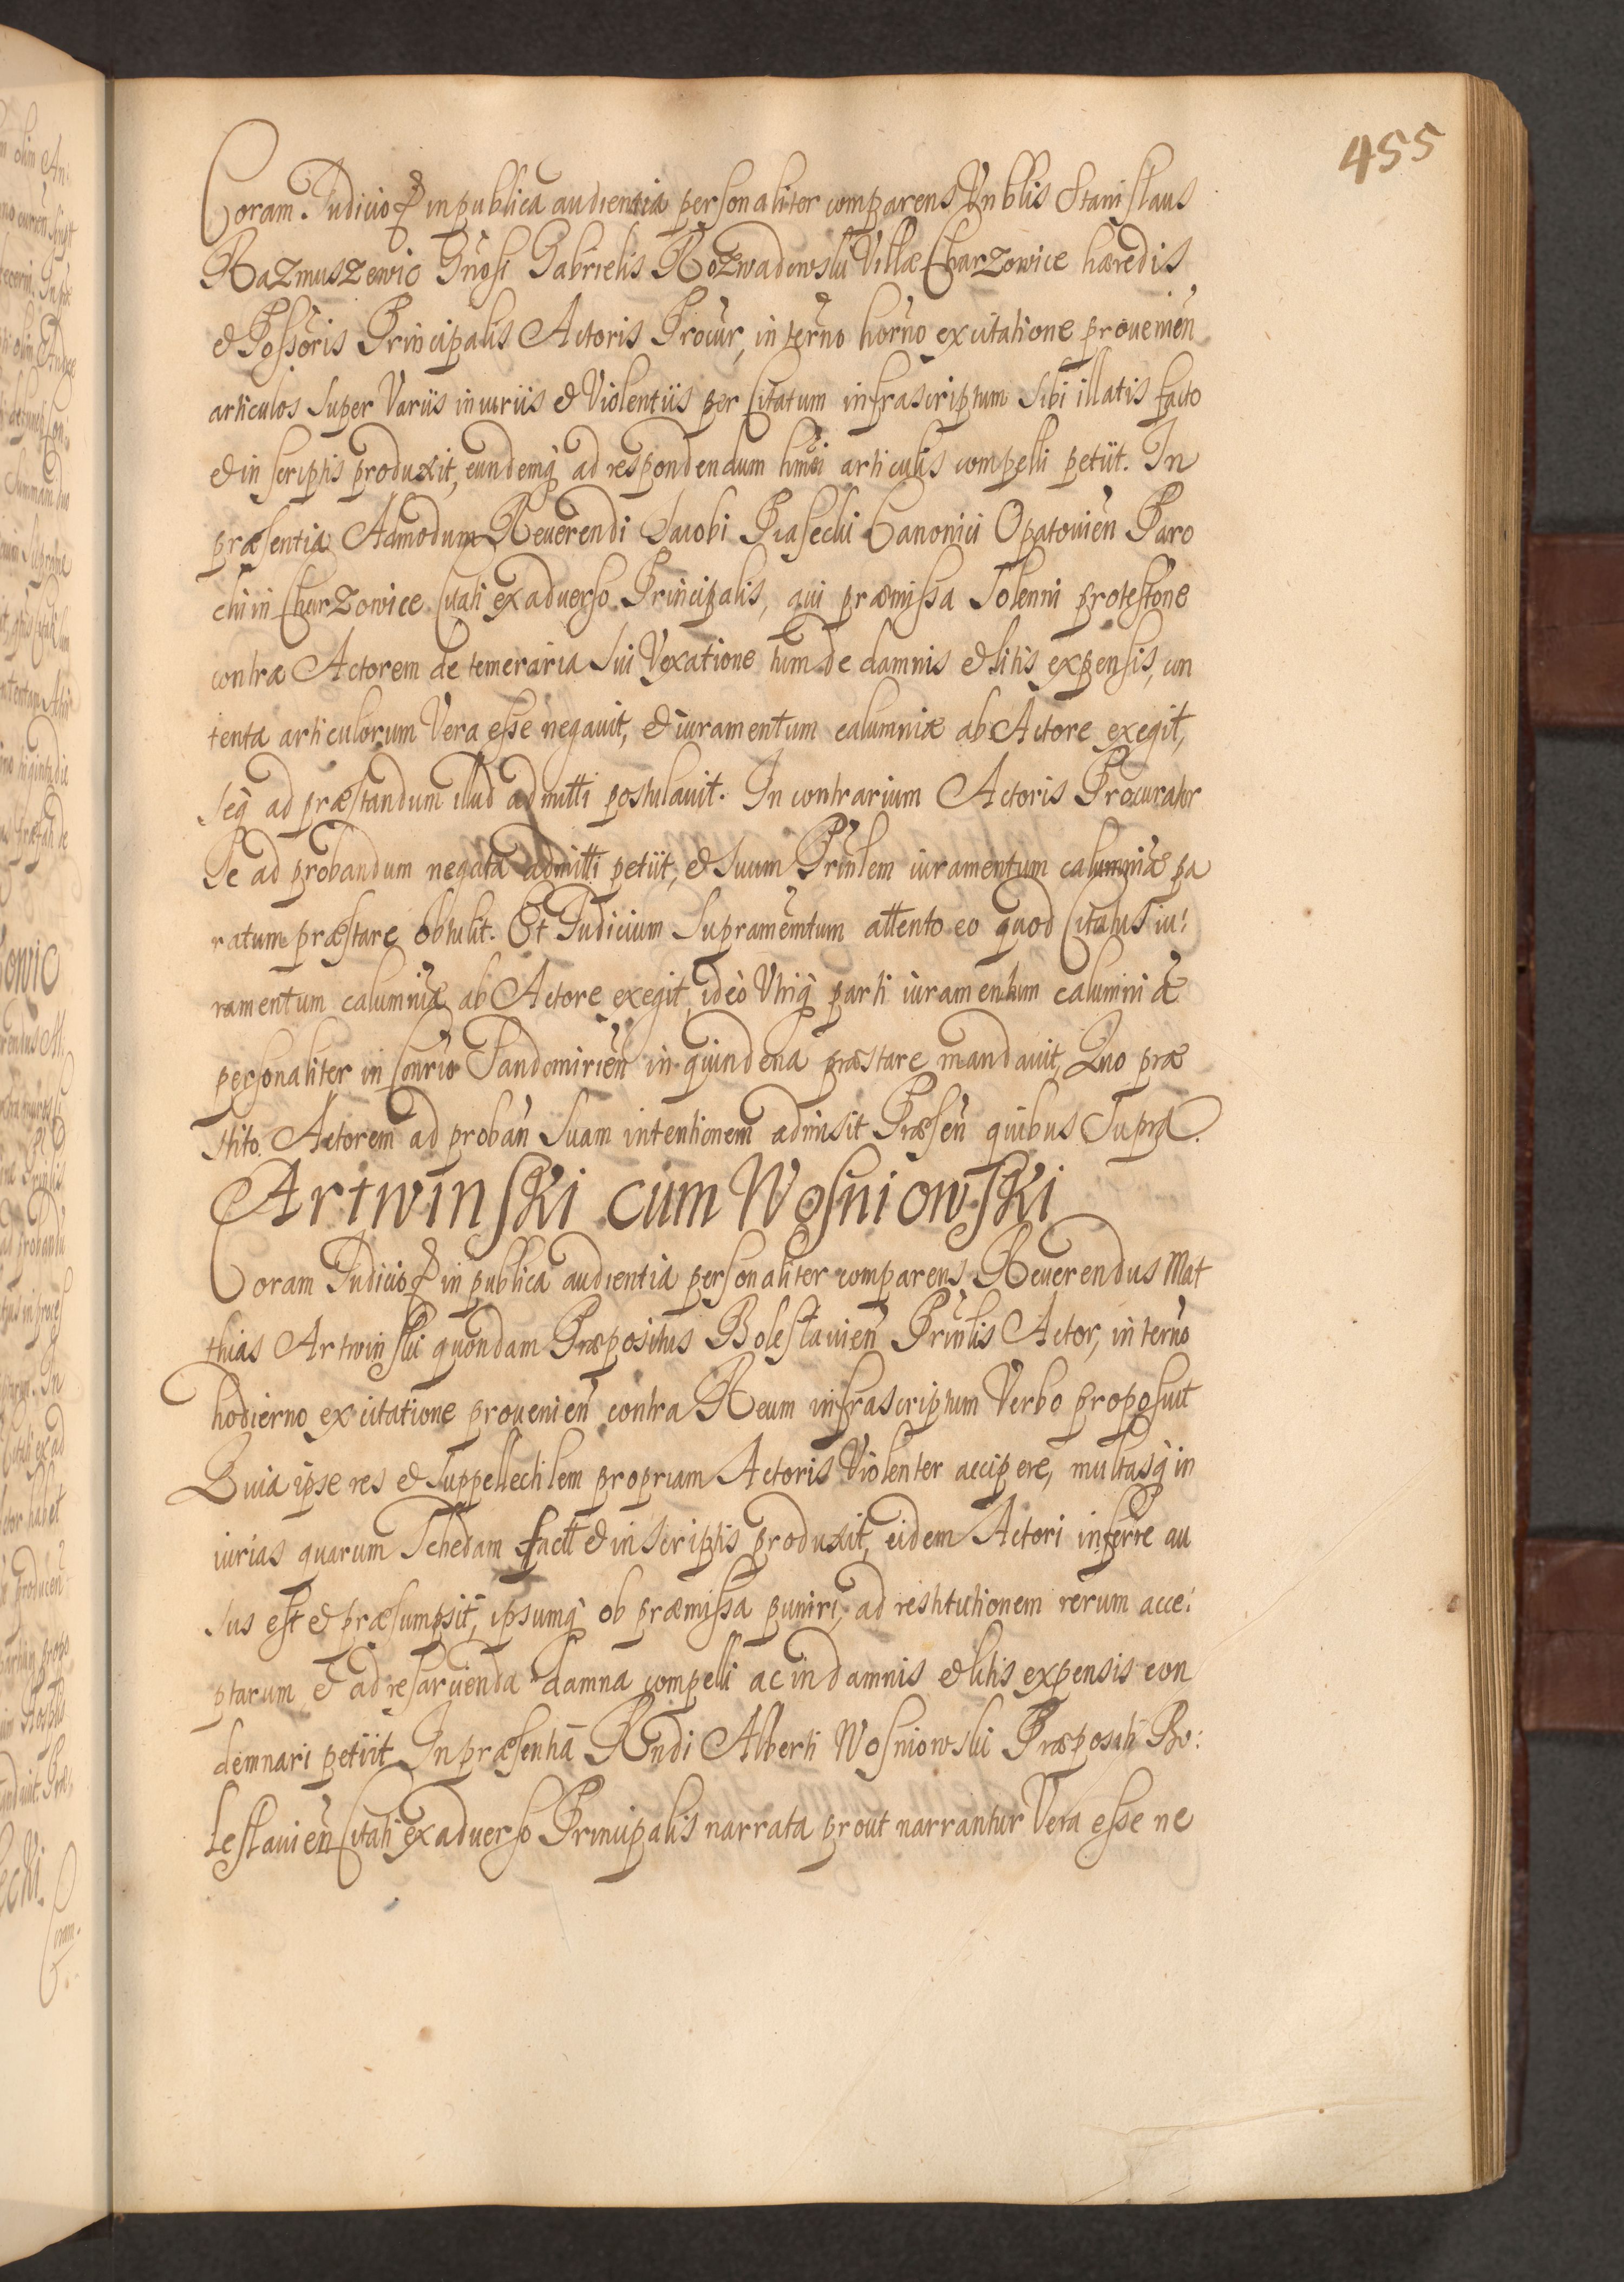 455
Coram Judicio & in publica audientia personaliter comparens Vnblis Stanislaus
Razmuszewic Gnosi Gabrielis Rozwadowski Villæ Charzowice hæredis
& Possoris Principalis Actoris Procur, in terno horno ex citatione prouenien
articulos super Variis iniuriis & Violentiis per Citatum infrascriptum sibi illatis facto
& in scriptis produxit, eundemq ad respondendum hmoi articulis compelli petiit. In
præsentia Admodum Reuerendi Jacobi Piasecki Canonici Opatouien Paro
chi in Charzowice Citati ex aduerso Principalis, qui præmissa Solenni protestone
contra Actorem de temeraria sui Vexatione tum de damnis & litis expensis, con
tenta articulorum Vera esse negauit, & iuramentum calumniæ ab Actore exegit,
seq ad præstandum illud admitti postulauit. In contrarium Actoris Procurator
Se ad probandum negata admitti petiit, & suum Prinlem iuramentum calumniæ pa
ratum præstare obtulit. Et Judicium Supramemtum attento eo quod Citatus iu:
ramentum calumniæ ab Actore exegit, ideò Vtriq parti iuramentum calumniæ
personaliter in Conrio Sandomirien in quindena præstare mandauit, Quo præ
stito. Actorem ad proban suam intentionem admisit Præsen quibus Supra.
Artwinski cum Wosniowski
Coram Judicio & in publica audientia personaliter comparens Reuerendus Mat
thias Artwinski quondam Præpositus Boleslauien Prinlis Actor, in terno
hodierno ex citatione prouenien contra Reum infrascriptum Verbo proposuit
Quia ipse res & suppellectilem propriam Actoris Violenter accipere, multasq in
iurias quarum Schedam factt & in scriptis produxit, eidem Actori inferre au
sus est & præsumpsit, ipsumq ob præmissa puniri, ad restitutionem rerum acce:
ptarum & ad resarcienda damna compelli ac in damnis & litis expensis con
demnari petiit In præsentia Rndi Alberti Wosniowski Præpositi Bo:
leslauien Citati ex aduerso Principalis narrata prout narrantur Vera esse ne